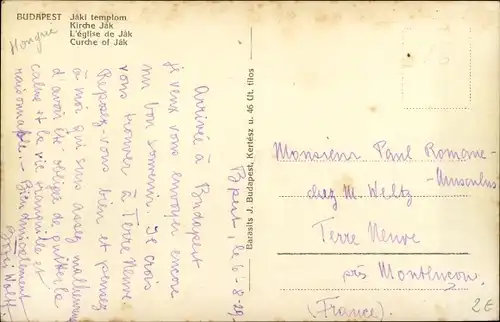 BUDAPEST Jáki templom
Kirche Ják
L'église de Ják
Curche of Ják
Hongrie
Arrivée à Budapest
je veux vous envoyer encore
un bon souvenir. Je crois
vous trouver à Terre Neuve
Reposez-vous bien et pensez
à moi qui suis assez malheureux
d'avoir été obligé de quitter la
calme et la vie tranquille et
raisonnable. - Bien amicalement
Wolf
Bpest, le 6-8-29
Barasits J. Budapest, Kertész u. 46 Ut. tilos
Monsieur Paul Romane-
chez M. Weltz
Terre Neuve
près Montluçon
(France)
2€